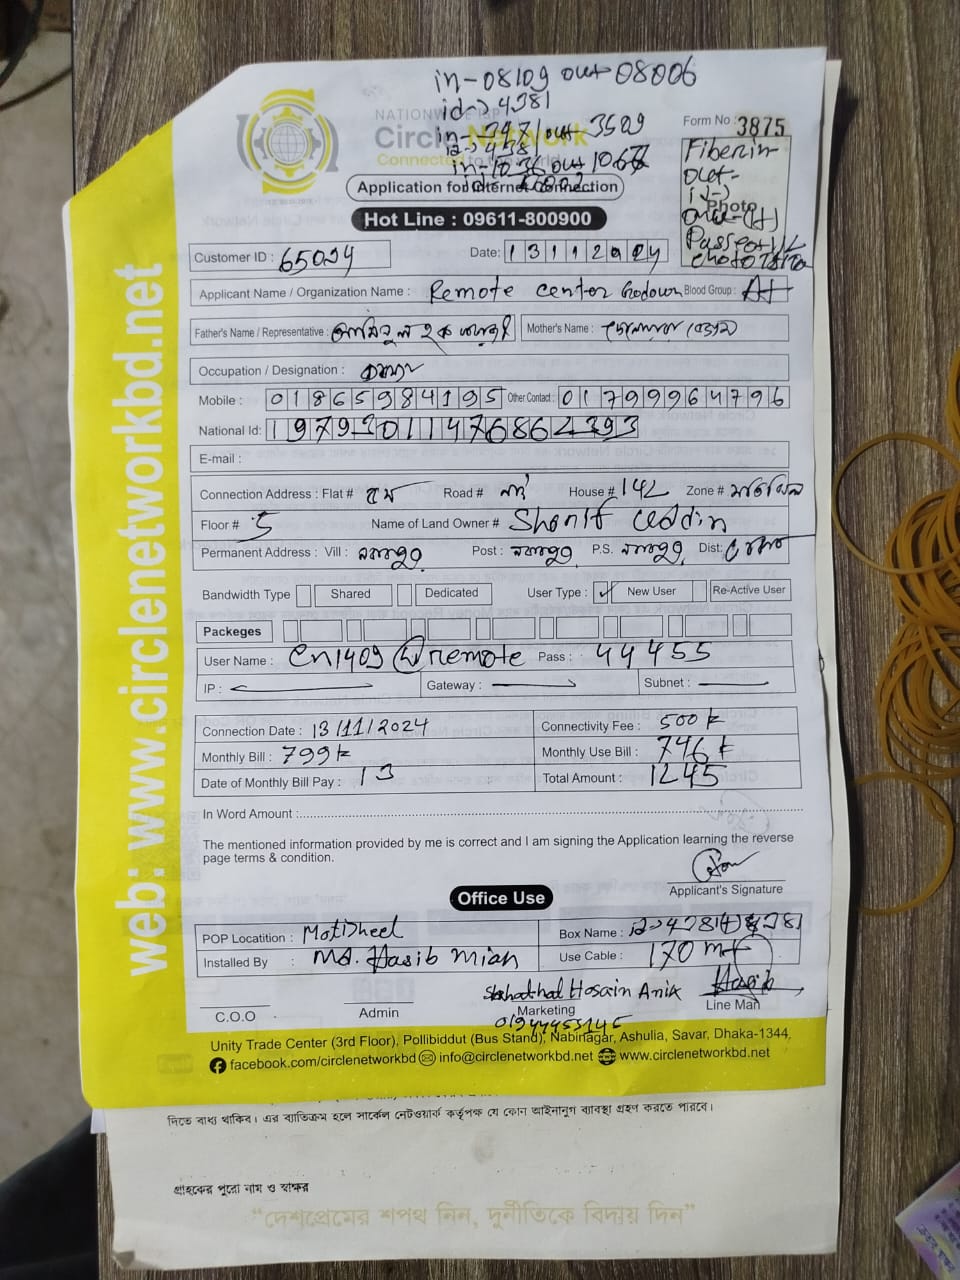 in-08109 out 08006
id-> 4381
NATIONWIDE ISP
Circle Network
Connected to the world
Form No : 3875
in- out- 3509
in-1036 out 1067
Fiber in-
out-
Photo
Application for Internet Connection
Hot Line : 09611-800900
Customer ID : 65094
Date: 13112024
Applicant Name / Organization Name : Remote center Godown Blood Group : A+
Father's Name / Representative :
Mother's Name :
Occupation / Designation :
Mobile : 01865984195 Other Contact : 01799964796
National Id: 19792011476862393
E-mail :
Connection Address : Flat # Road # House # 142 Zone # মতিঝিল
Floor # 5 Name of Land Owner # Sharif Uddin
Permanent Address : Vill : Post : P.S. Dist:
Bandwidth Type Shared Dedicated User Type : ✓ New User Re-Active User
Packeges
User Name : cn1409@remote Pass : 44455
IP : Gateway : Subnet :
Connection Date : 13/11/2024 Connectivity Fee : 500 tk
Monthly Bill : 799 tk Monthly Use Bill : 746 tk
Date of Monthly Bill Pay : 13 Total Amount : 1245
In Word Amount :
The mentioned information provided by me is correct and I am signing the Application learning the reverse
page terms & condition.
Applicant's Signature
Office Use
POP Locatition : Motijheel Box Name :
Installed By : Md. Hasib Mian Use Cable : 170 m
Hosain Anik Hasib
C.O.O Admin Marketing Line Man
Unity Trade Center (3rd Floor), Pollibiddut (Bus Stand), Nabinagar, Ashulia, Savar, Dhaka-1344,
facebook.com/circlenetworkbd info@circlenetworkbd.net www.circlenetworkbd.net
web: www.circlenetworkbd.net
দিতে বাধ্য থাকিব। এর ব্যতিক্রম হলে সার্কেল নেটওয়ার্ক কর্তৃপক্ষ যে কোন আইনানুগ ব্যবস্থা গ্রহণ করতে পারবে।
গ্রাহকের পুরো নাম ও স্বাক্ষর
“দেশপ্রেমের শপথ নিন, দুর্নীতিকে বিদায় দিন”